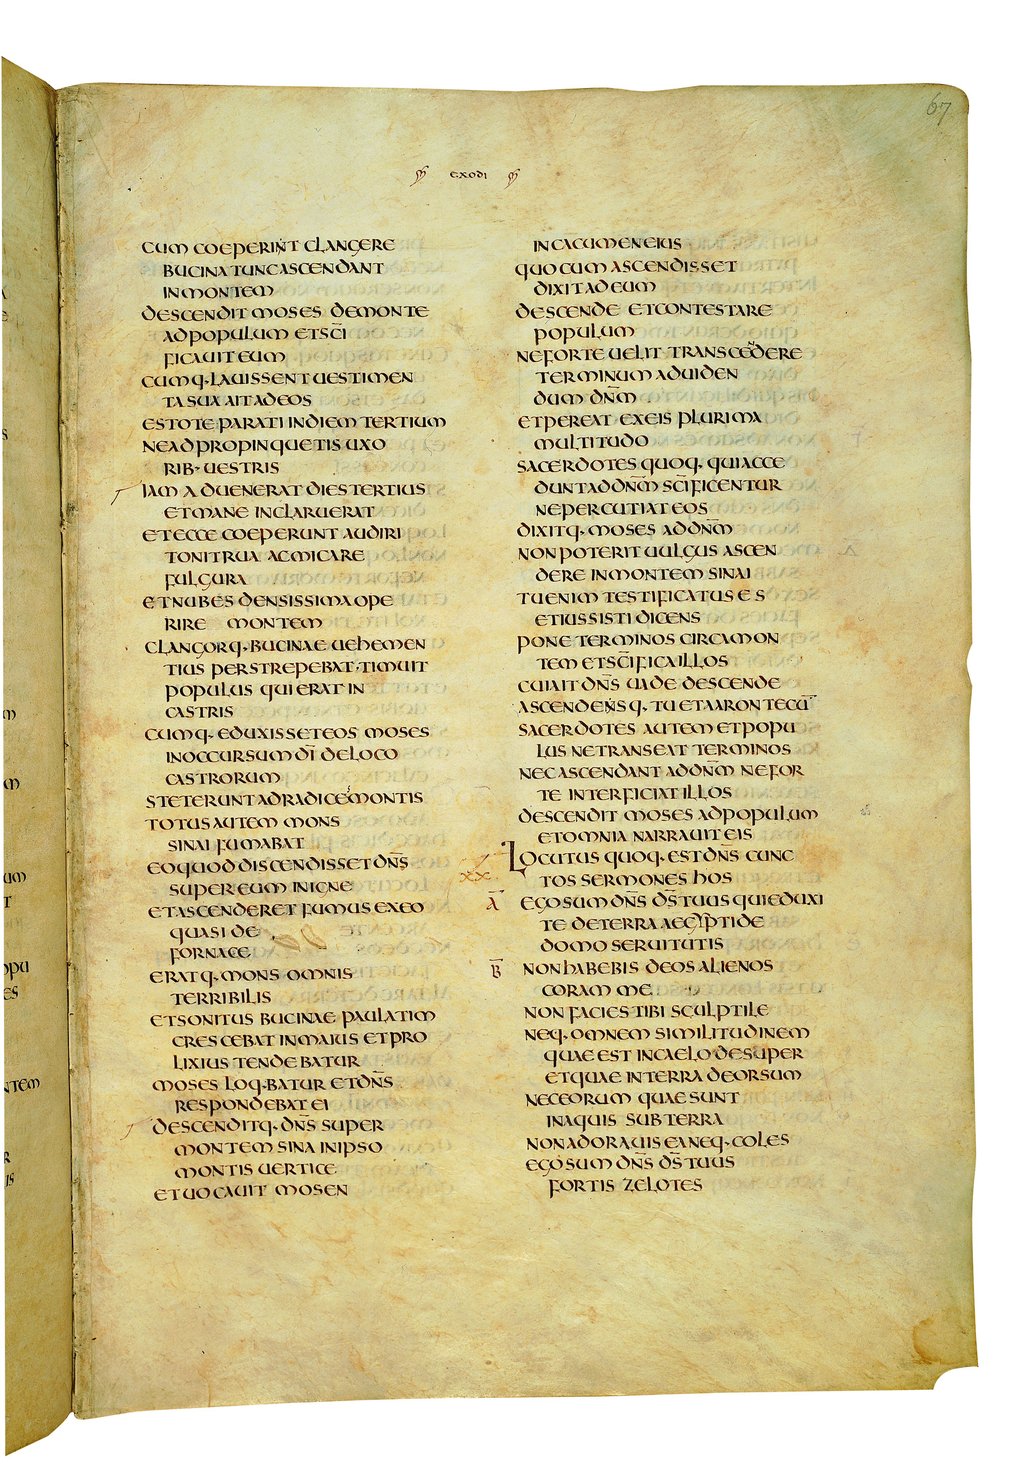 67
EXODI
CUM COEPERIN̄T CLANGERE
BUCINA TUNC ASCENDANT
IN MONTEM
DESCENDIT MOSES DE MONTE
AD POPULUM ET SC̄I
FICAUIT EUM
CUMQ· LAUISSENT UESTIMEN
TA SUA AIT AD EOS
ESTOTE PARATI IN DIEM TERTIUM
NE ADPROPINQUETIS UXO
RIB· UESTRIS
IAM ADUENERAT DIES TERTIUS
ET MANE INCLARUERAT
ET ECCE COEPERUNT AUDIRI
TONITRUA AC MICARE
FULGURA
ET NUBES DENSISSIMA OPE
RIRE MONTEM
CLANGORQ· BUCINAE UEHEMEN
TIUS PERSTREPEBAT· TIMUIT
POPULUS QUI ERAT IN
CASTRIS
CUMQ· EDUXISSET EOS MOSES
IN OCCURSUM DĪ DE LOCO
CASTRORUM
STETERUNT AD RADICE MONTIS
TOTUS AUTEM MONS
SINAI FUMABAT
EO QUOD DISCENDISSET DN̄S
SUPER EUM IN IGNE
ET ASCENDERET FUMUS EX EO
QUASI DE
FORNACE
ERATQ· MONS OMNIS
TERRIBILIS
ET SONITUS BUCINAE PAULATIM
CRESCEBAT IN MAIUS ET PRO
LIXIUS TENDEBATUR
MOSES LOQ·BATUR ET DN̄S
RESPONDEBAT EI
DESCENDITQ· DN̄S SUPER
MONTEM SINA IN IPSO
MONTIS UERTICE
ET UOCAUIT MOSEN
IN CACUMEN EIUS
QUO CUM ASCENDISSET
DIXIT AD EUM
DESCENDE ET CONTESTARE
POPULUM
NE FORTE UELIT TRANSCEDERE
TERMINUM AD UIDEN
DUM DN̄M
ET PEREAT EX EIS PLURIMA
MULTITUDO
SACERDOTES QUOQ· QUI ACCE
DUNT AD DN̄M SC̄IFICENTUR
NE PERCUTIAT EOS
DIXITQ· MOSES AD DN̄M
NON POTERIT UULGUS ASCEN
DERE IN MONTEM SINAI
TU ENIM TESTIFICATUS ES
ET IUSSISTI DICENS
PONE TERMINOS CIRCA MON
TEM ET SC̄IFICA ILLOS
CUI AIT DN̄S UADE DESCENDE
ASCENDENSQ· TU ET AARON TECŪ
SACERDOTES AUTEM ET POPU
LUS NE TRANSEAT TERMINOS
NEC ASCENDANT AD DN̄M NE FOR
TE INTERFICIAT ILLOS
DESCENDIT MOSES AD POPULUM
ET OMNIA NARRAUIT EIS
LOCUTUS QUOQ· EST DN̄S CUNC
XX TOS SERMONES HOS
Ā EGO SUM DN̄S DS̄ TUUS QUI EDUXI
TE DE TERRA AEGYPTI DE
DOMO SERUITUTIS
B̄ NON HABEBIS DEOS ALIENOS
CORAM ME
NON FACIES TIBI SCULPTILE
NEQ· OMNEM SIMILITUDINEM
QUAE EST IN CAELO DESUPER
ET QUAE IN TERRA DEORSUM
NEC EORUM QUAE SUNT
IN AQUIS SUB TERRA
NON ADORAUIS EA NEQ· COLES
EGO SUM DN̄S DS̄ TUUS
FORTIS ZELOTES